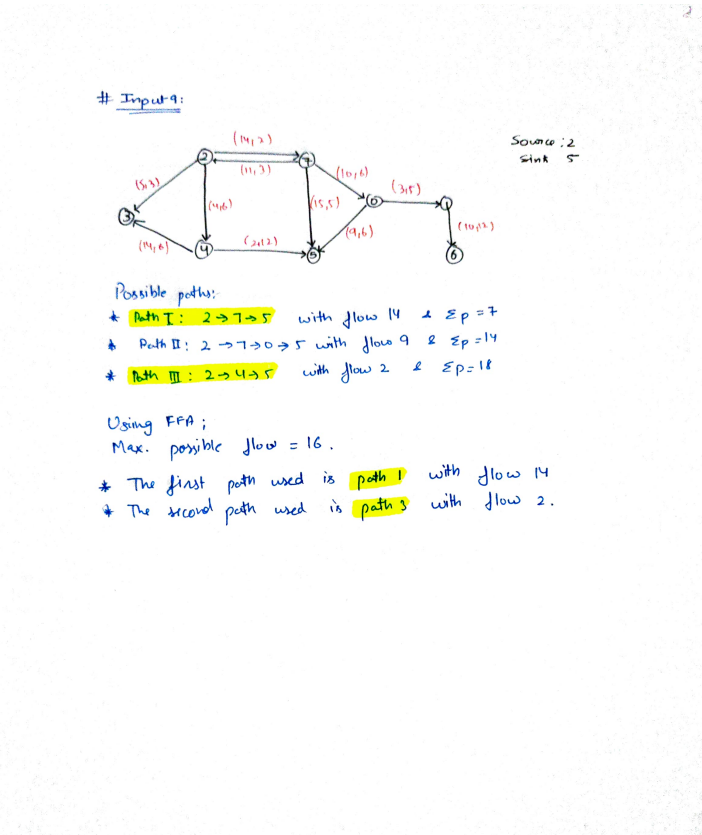 # Input 9:
Source : 2
Sink 5
(14,2)
2
7
(11,3)
(10,6)
(5,3)
(3,5)
(4,6)
(15,5)
0
1
3
(9,6)
(10,12)
(14,6)
(2,12)
4
5
6
Possible paths:
* Path I : 2 → 7 → 5 with flow 14 & Σp = 7
* Path II : 2 → 7 → 0 → 5 with flow 9 & Σp = 14
* Path III : 2 → 4 → 5 with flow 2 & Σp = 18
Using FFA ;
Max. possible flow = 16 .
* The first path used is path 1 with flow 14
* The second path used is path 3 with flow 2 .